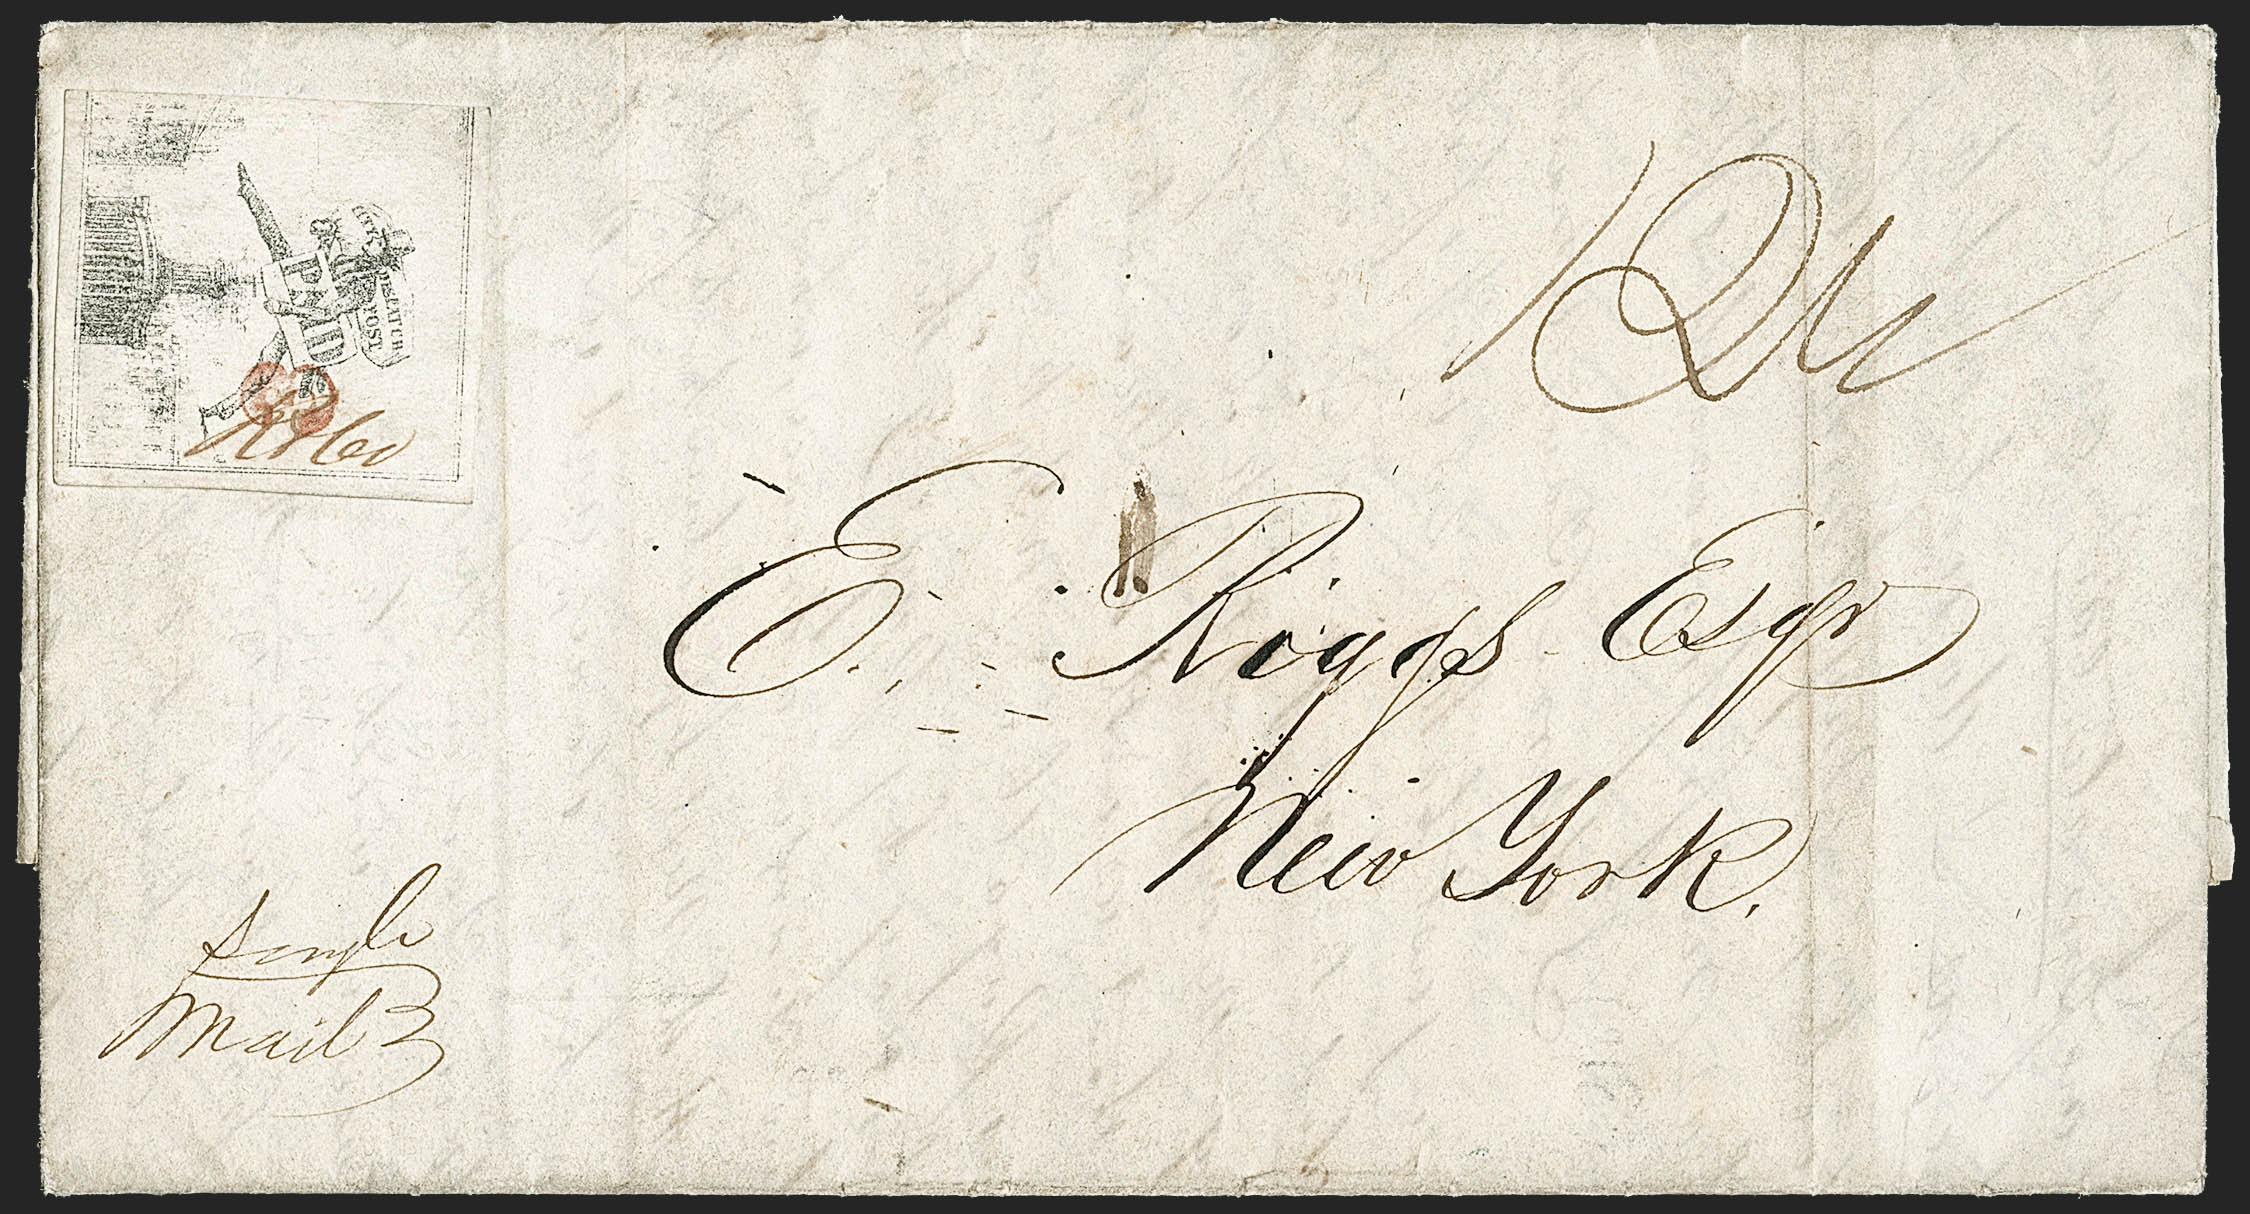 CITY DESPATCH
POST
PAID
R & Co
12½
E. Riggs Esqr
New York.
Single
Mail